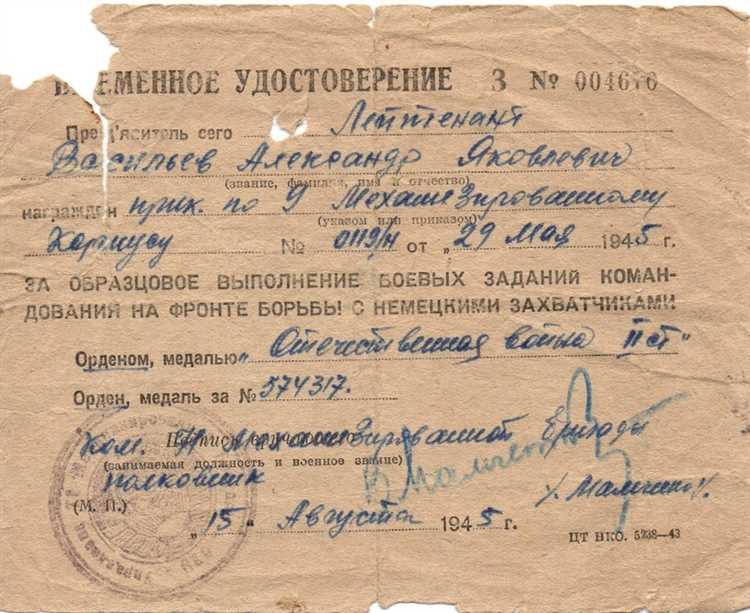 ВРЕМЕННОЕ УДОСТОВЕРЕНИЕ З № 004676
Пред'явитель сего Лейтенант
Васильев Александр Яковлевич
(звание, фамилия, имя и отчество)
награжден прик. по 9 Механизированному
(указом или приказом)
Корпусу № 0119/н от „29 Мая 1945 г.
ЗА ОБРАЗЦОВОЕ ВЫПОЛНЕНИЕ БОЕВЫХ ЗАДАНИЙ КОМАН-
ДОВАНИЯ НА ФРОНТЕ БОРЬБЫ С НЕМЕЦКИМИ ЗАХВАТЧИКАМИ
Орденом, медалью „Отечественная война II ст"
Орден, медаль за № 574317.
Ком. Механизированной бригады
(занимаемая должность и военное звание)
полковник
(М. П.) /.Мальченко/.
„15" Августа 1945 г.
ЦТ ВКО. 5238—43